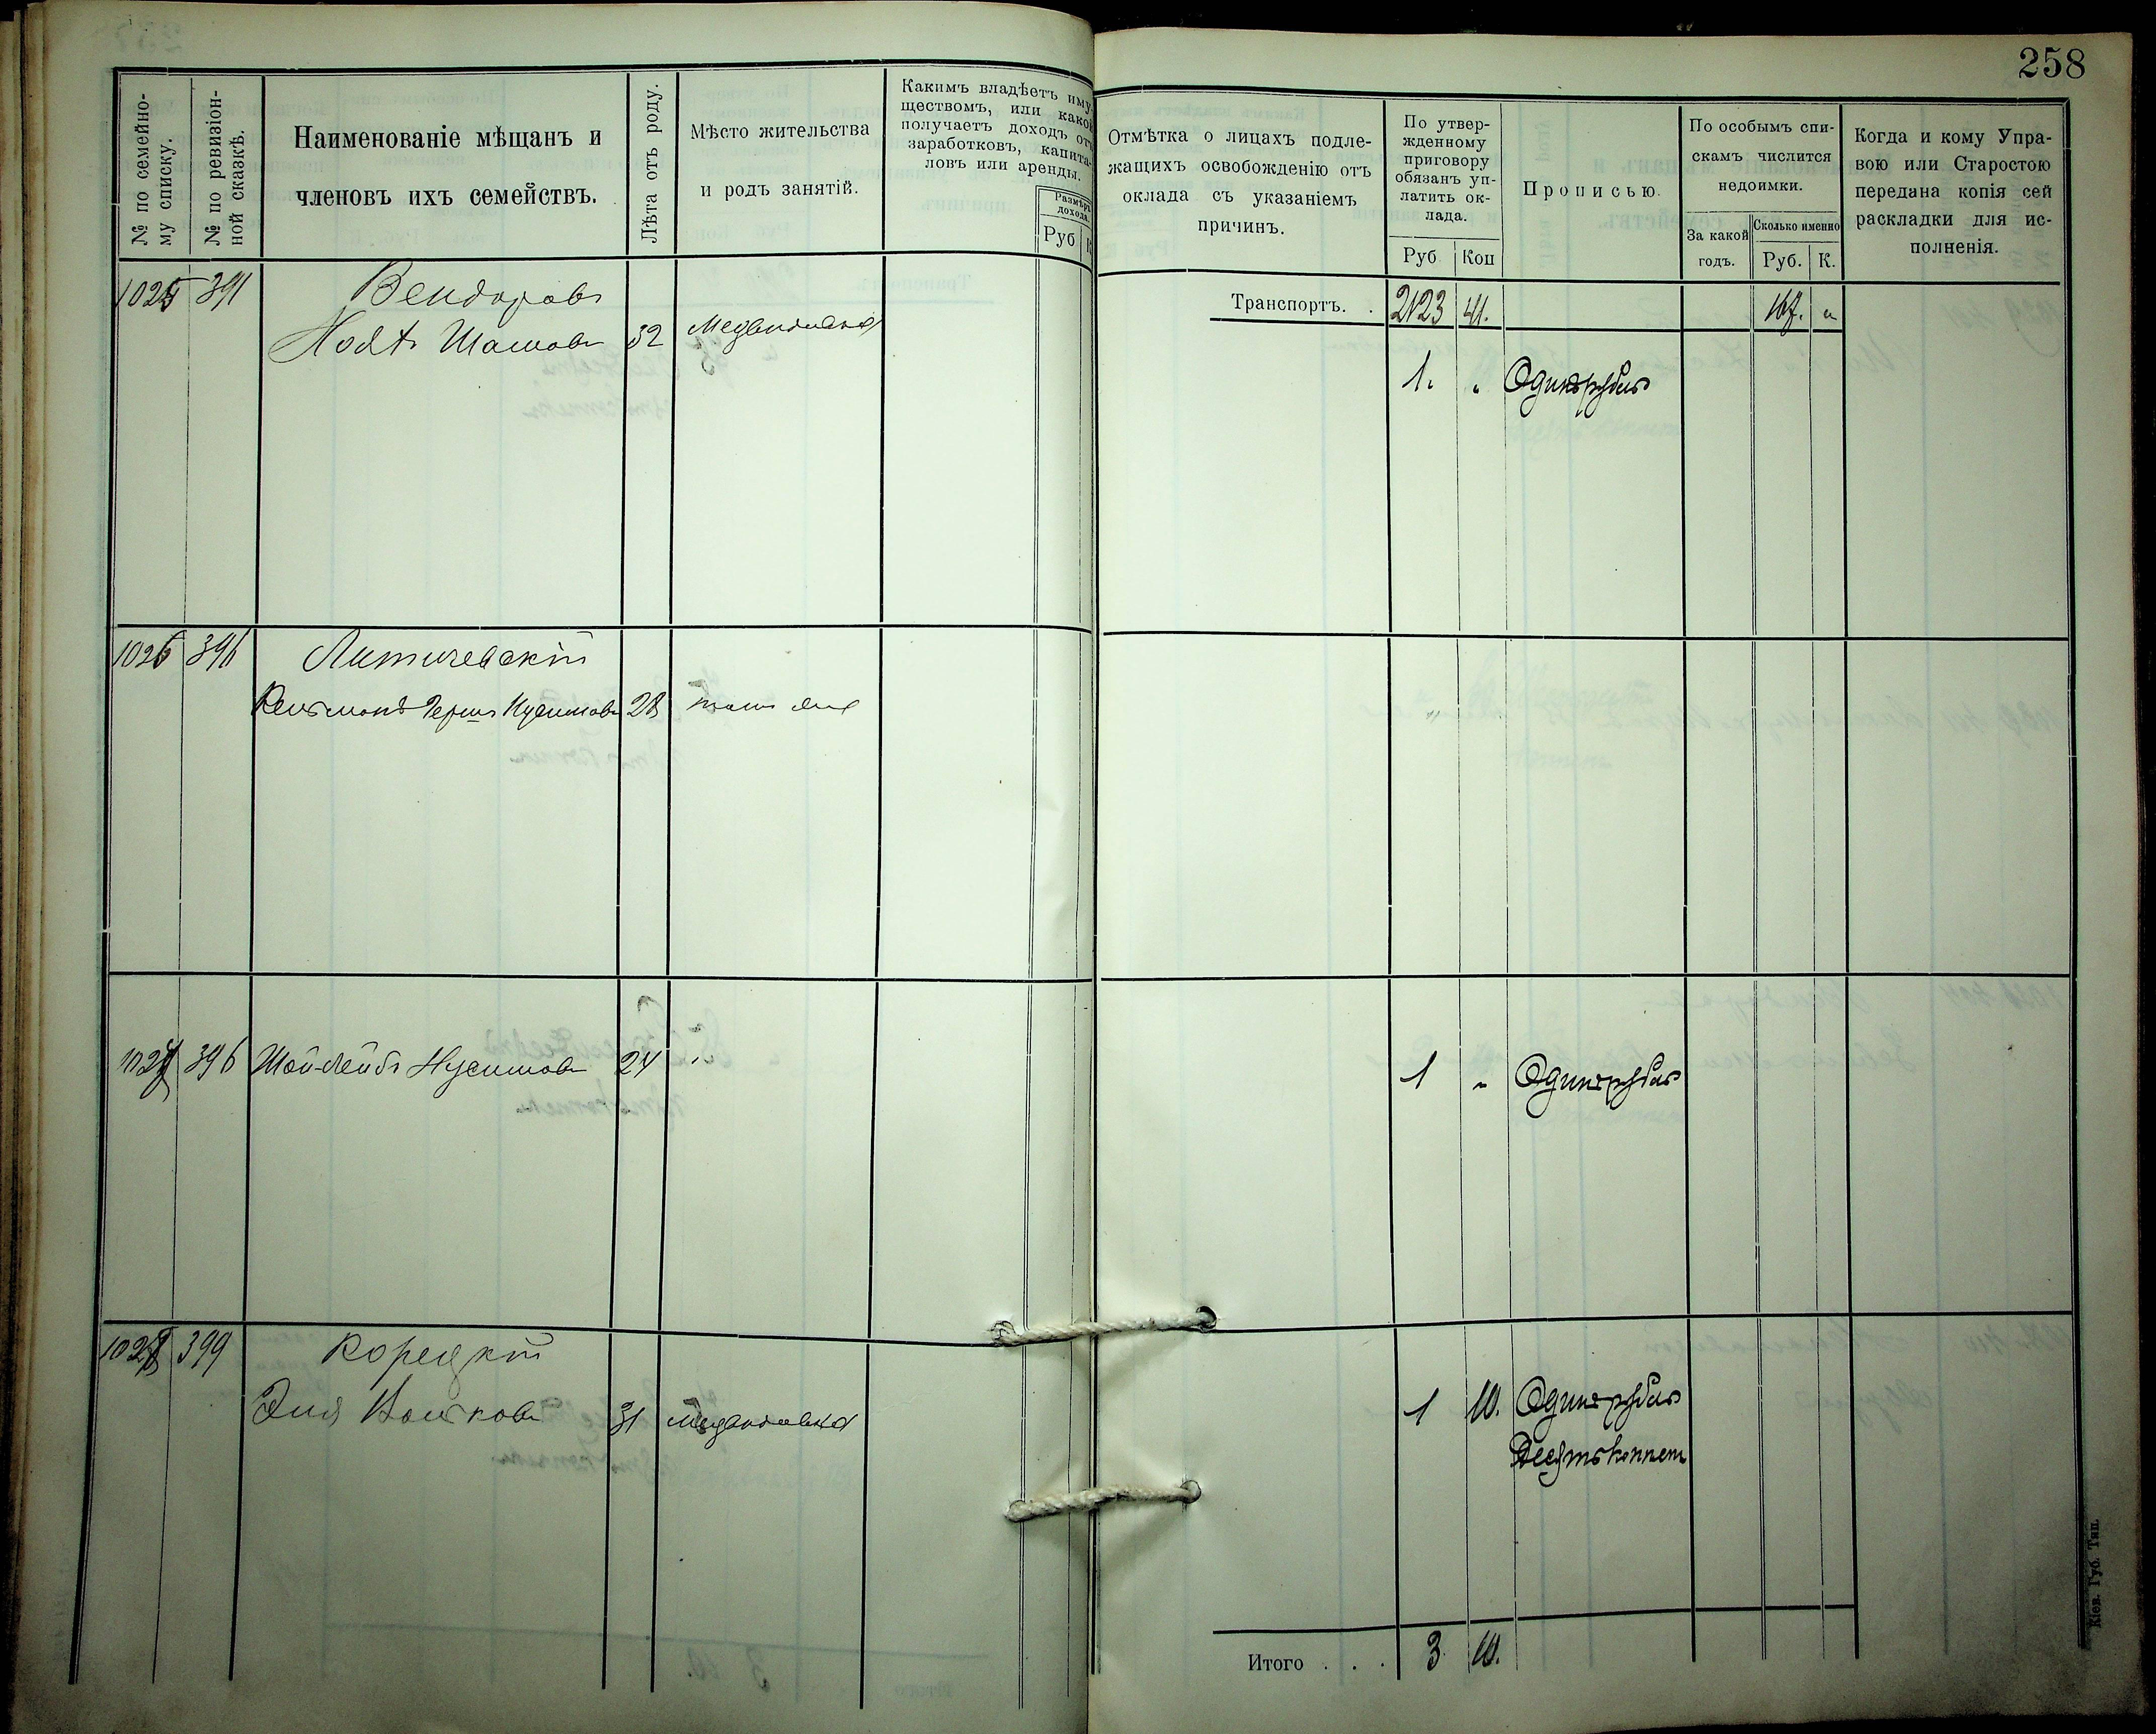 258
№ по семейно-
му списку.
№ по ревизіон-
ной сказкѣ.
Наименованіе мѣщанъ и
членовъ ихъ семействъ.
Лѣта отъ роду.
Мѣсто жительства
и родъ занятій.
Какимъ владѣетъ иму-
ществомъ, или какой
получаетъ доходъ отъ
заработковъ, капита-
ловъ или аренды.
Размѣръ
дохода.
Руб К
Отмѣтка о лицахъ подле-
жащихъ освобожденію отъ
оклада съ указаніемъ
причинъ.
По утвер-
жденному
приговору
обязанъ уп-
латить ок-
лада.
Руб Коп
Прописью.
По особымъ спи-
скамъ числится
недоимки.
За какой
годъ.
Сколько именно
Руб. К.
Когда и кому Упра-
вою или Старостою
передана копія сей
раскладки для ис-
полненія.
Транспортъ. . 2123 41. 167. "
1025 391 Вендоровъ
32
1. " Одинърубль
1026 396 Литичевскій
Герш Нусимовъ 28 тоже
1027 396 Шой-Лейбъ Нусимовъ 24 "
1 " Одинърубль
1028 399 Корецкій
Эля 31
1 10. Одинърубль
Десятькопѣек
Итого . . . 3 10.
Кіев. Губ. Тип.